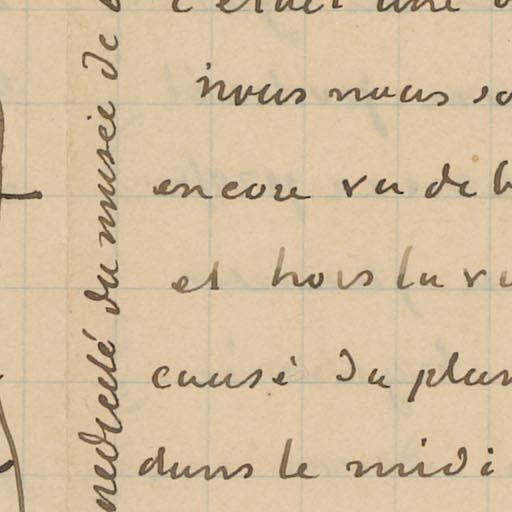 c'était une
nous nous so
encore vu de b
et hors la vi
causé du plan
dans le midi
du musée de